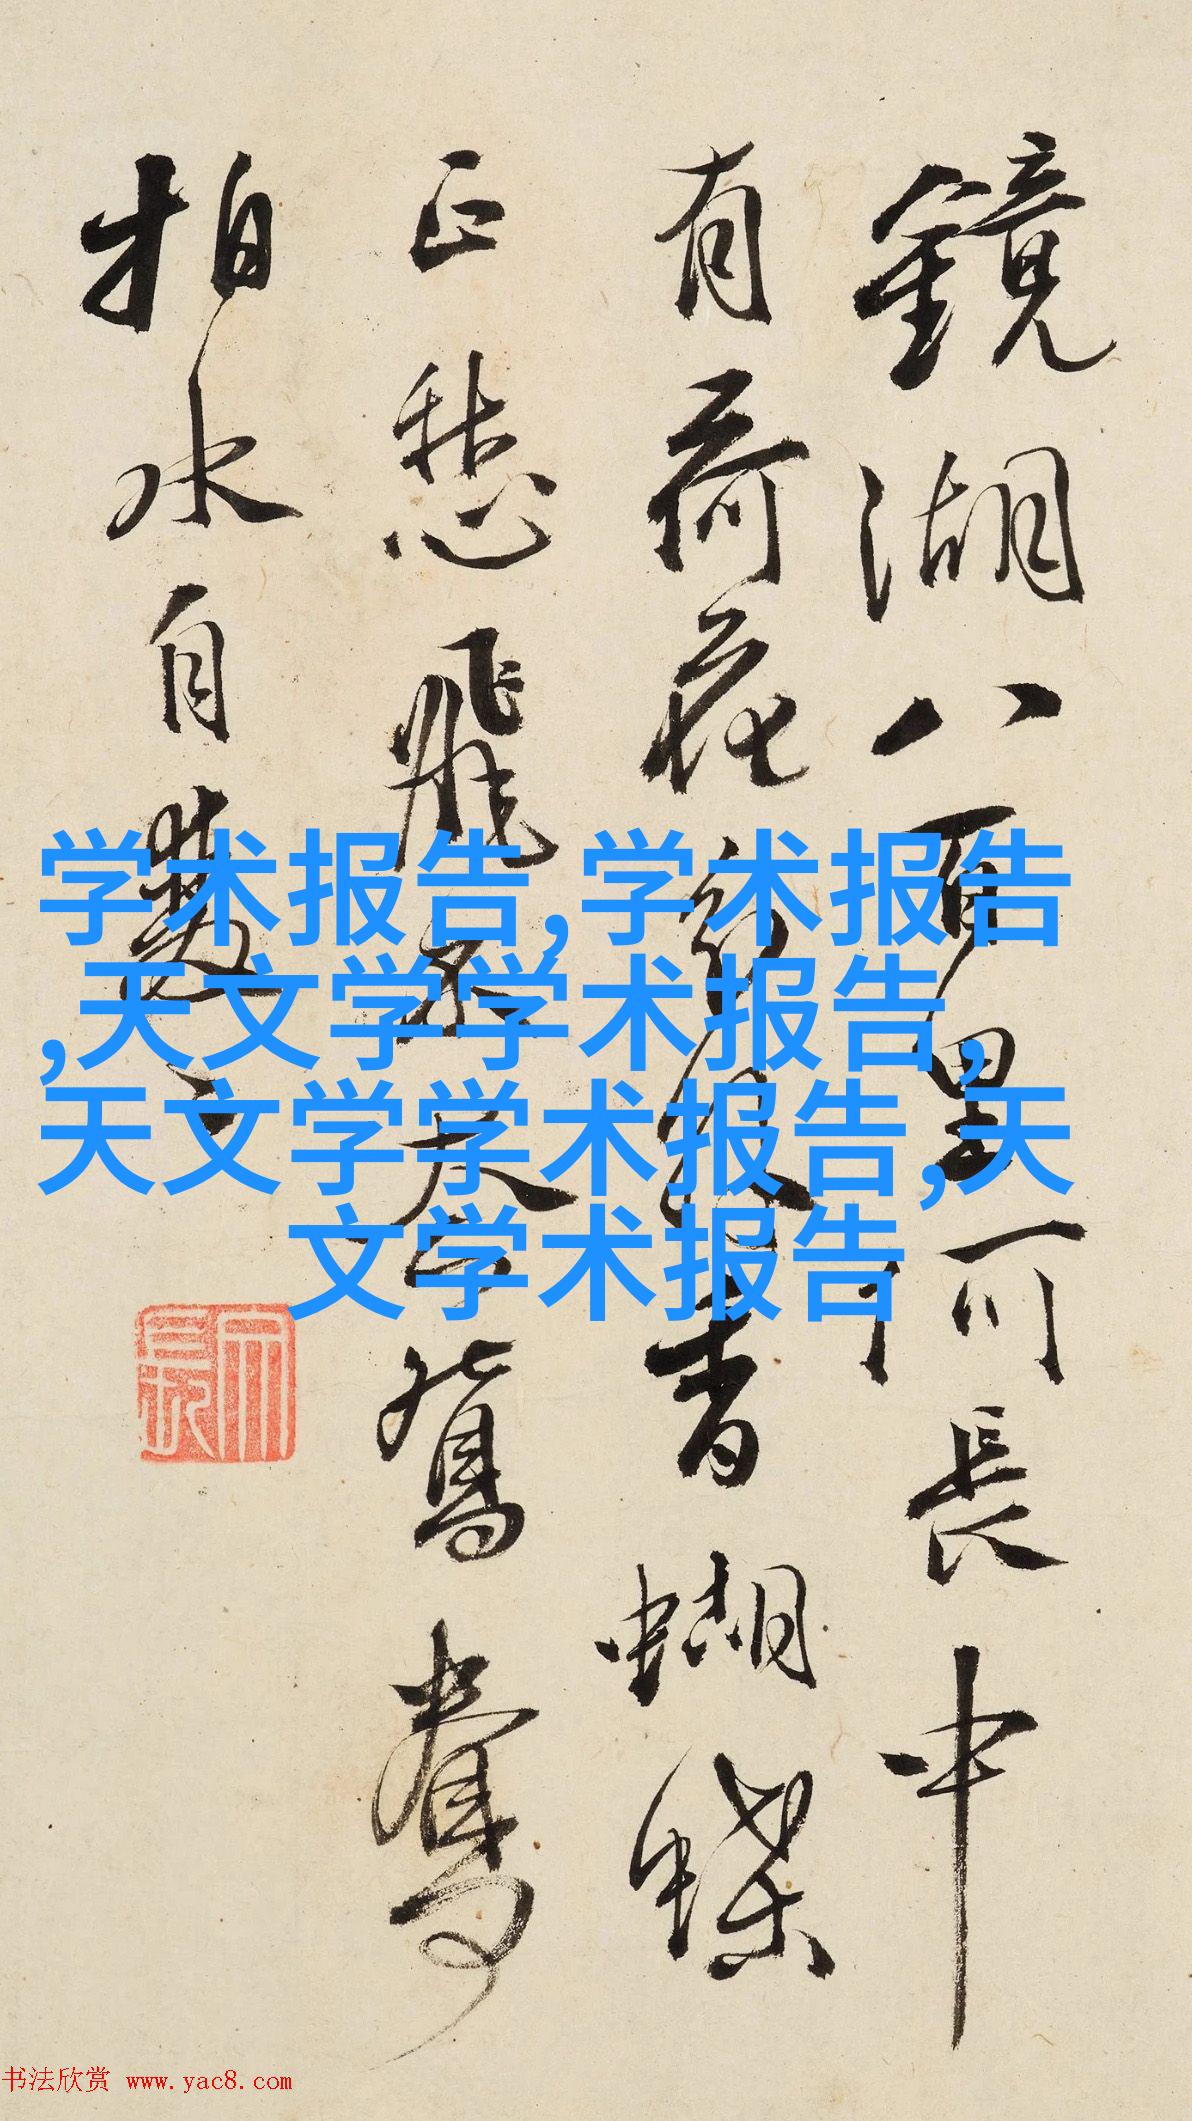 鏡湖八百里何長中
有荷花分外香蝴蝶
正愁飛不過鴛鴦
拍水自雙雙
学术报告,学术报告
,天文学学术报告,
天文学学术报告,天
文学术报告
书法欣赏 www.yac8.com